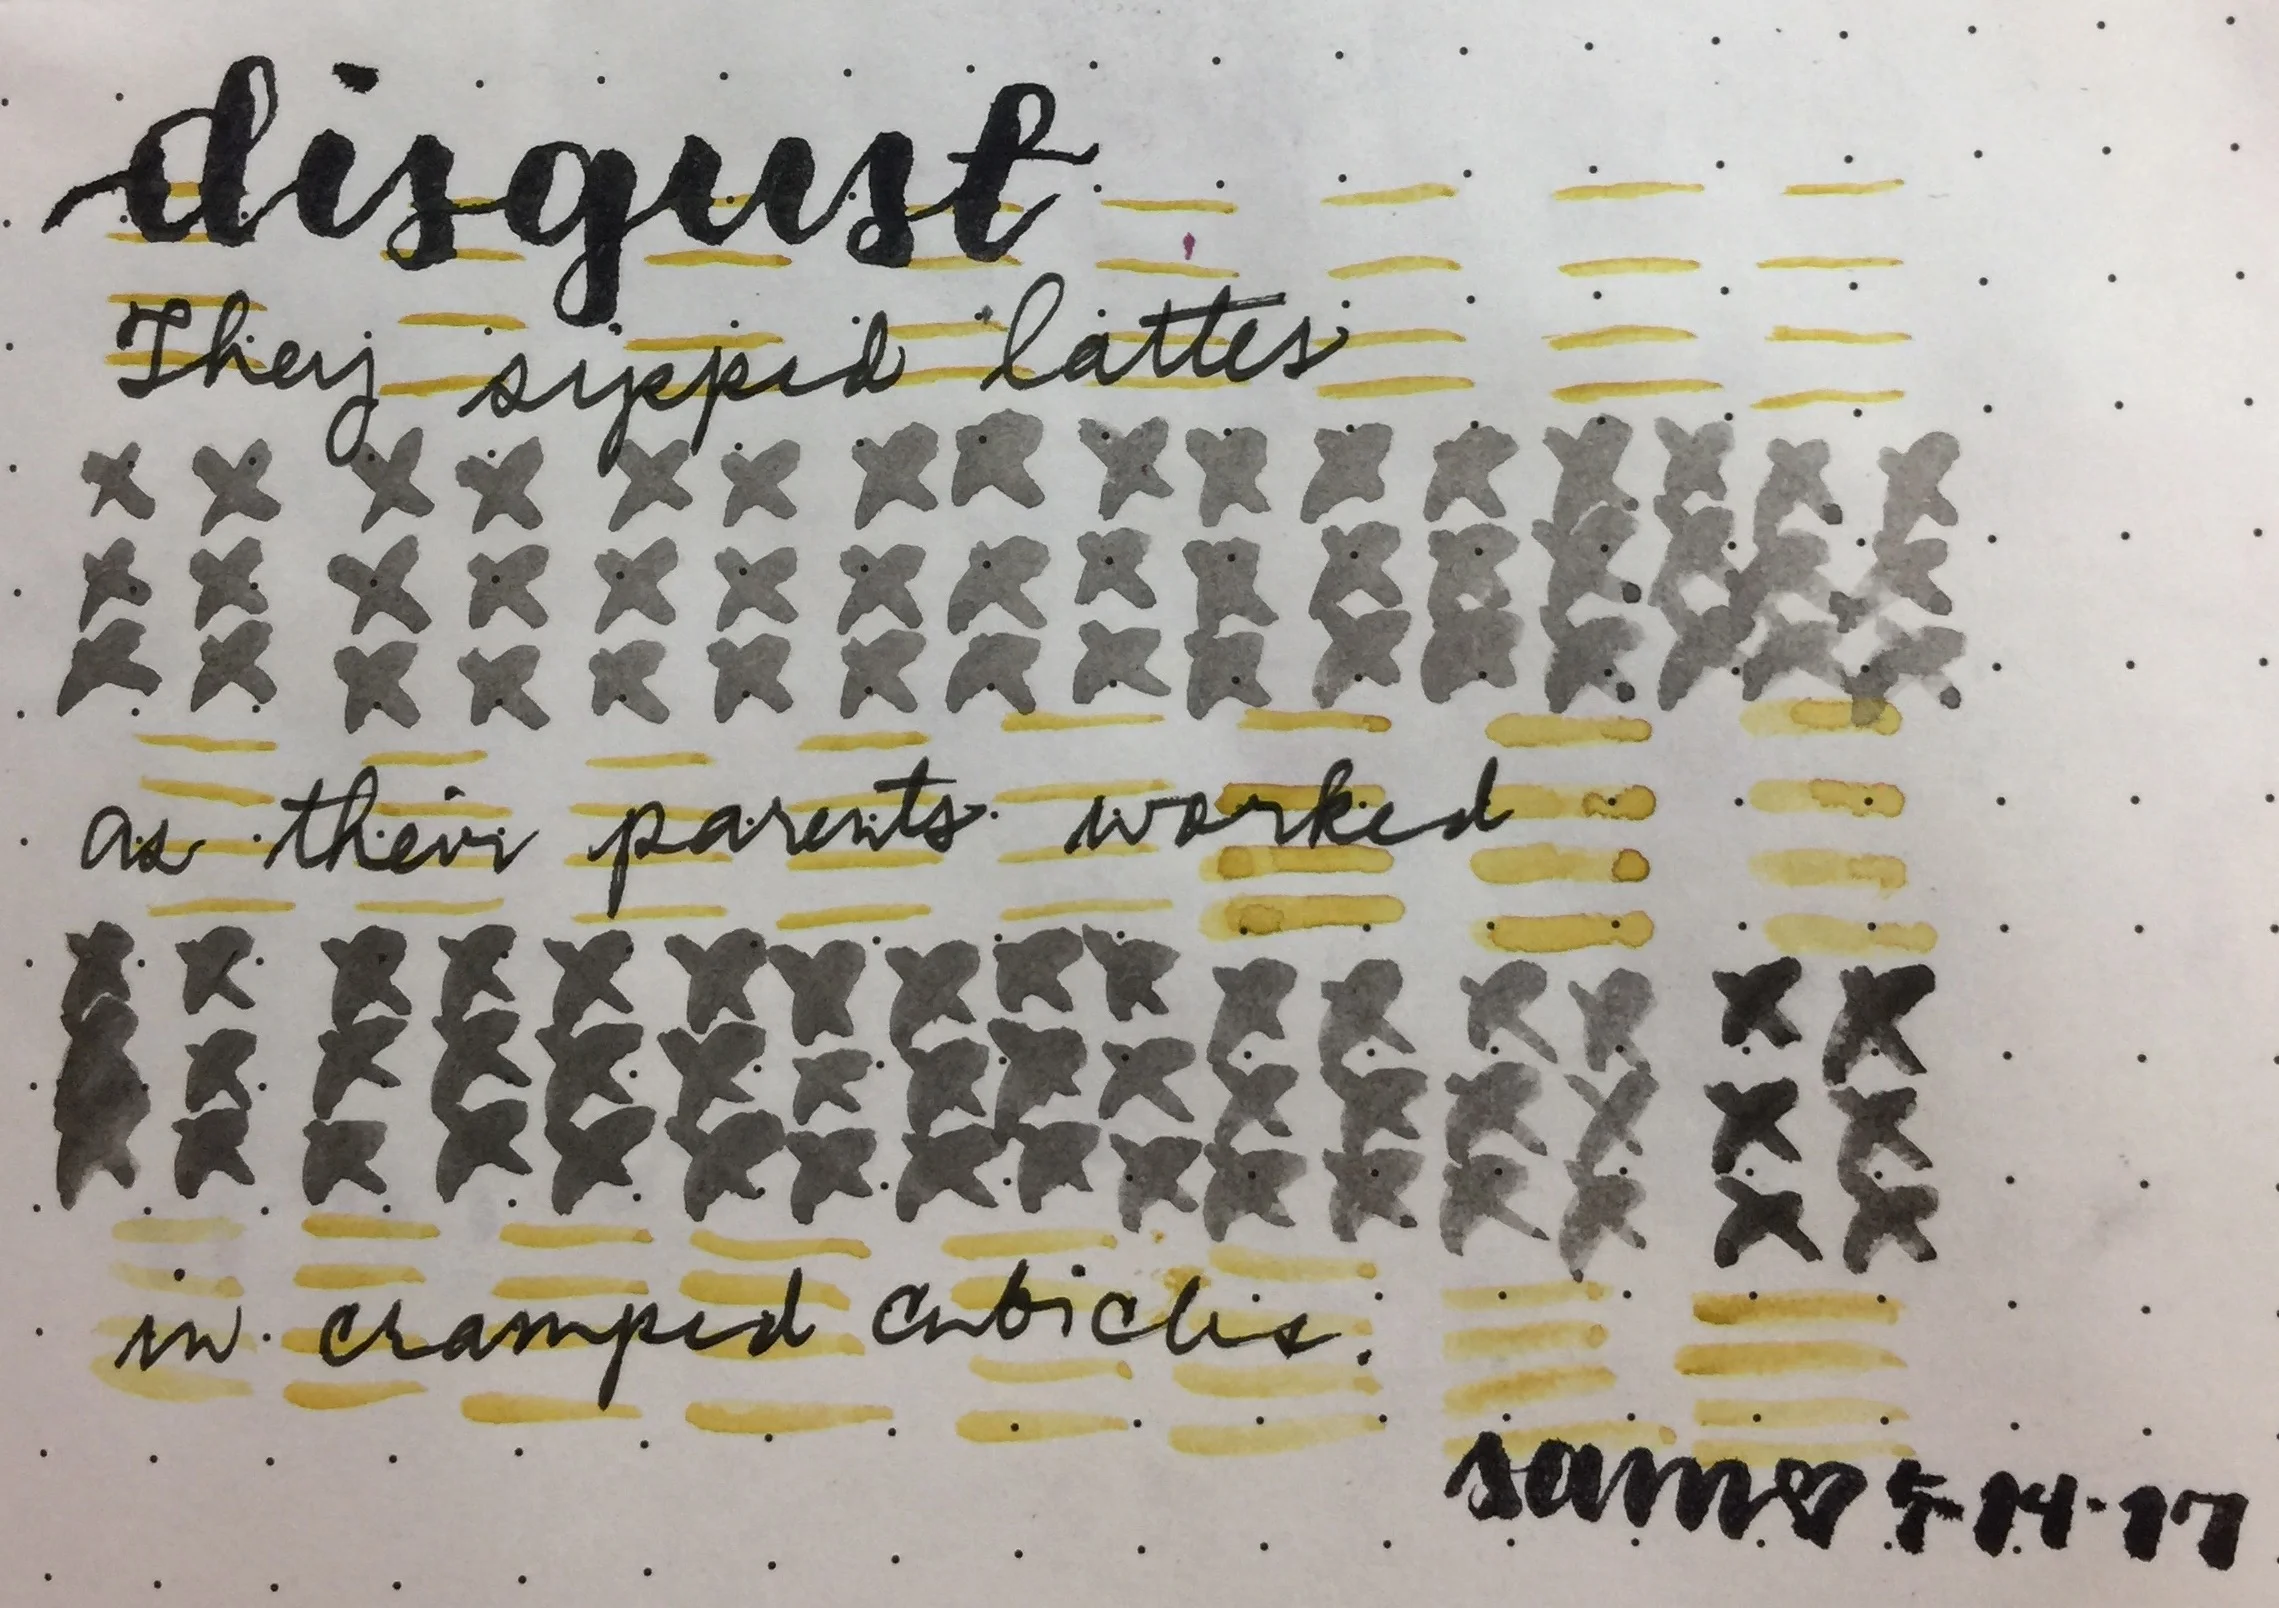 disgust
They sipped lattes
as their parents worked
in cramped cubicles.
sam ♡ 5-14-17